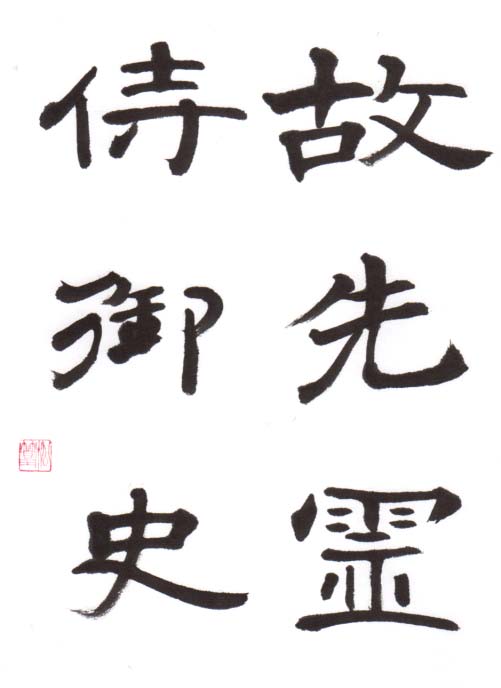 故先霊
侍御史